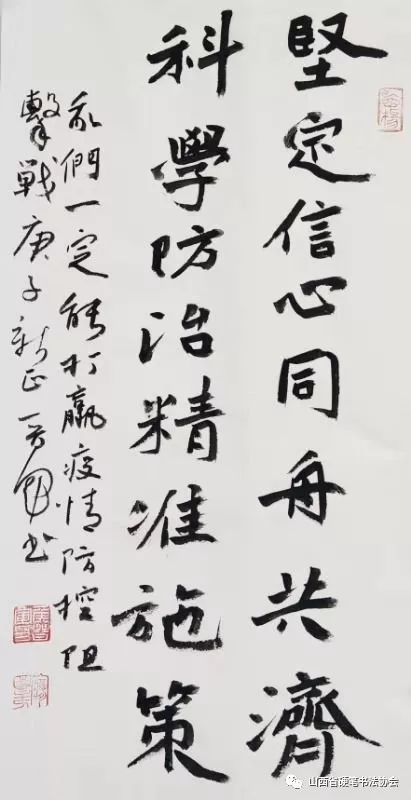 堅定信心同舟共濟
科學防治精准施策
我們一定能打贏疫情防控阻
擊戰庚子新正晋书
山西省硬笔书法协会